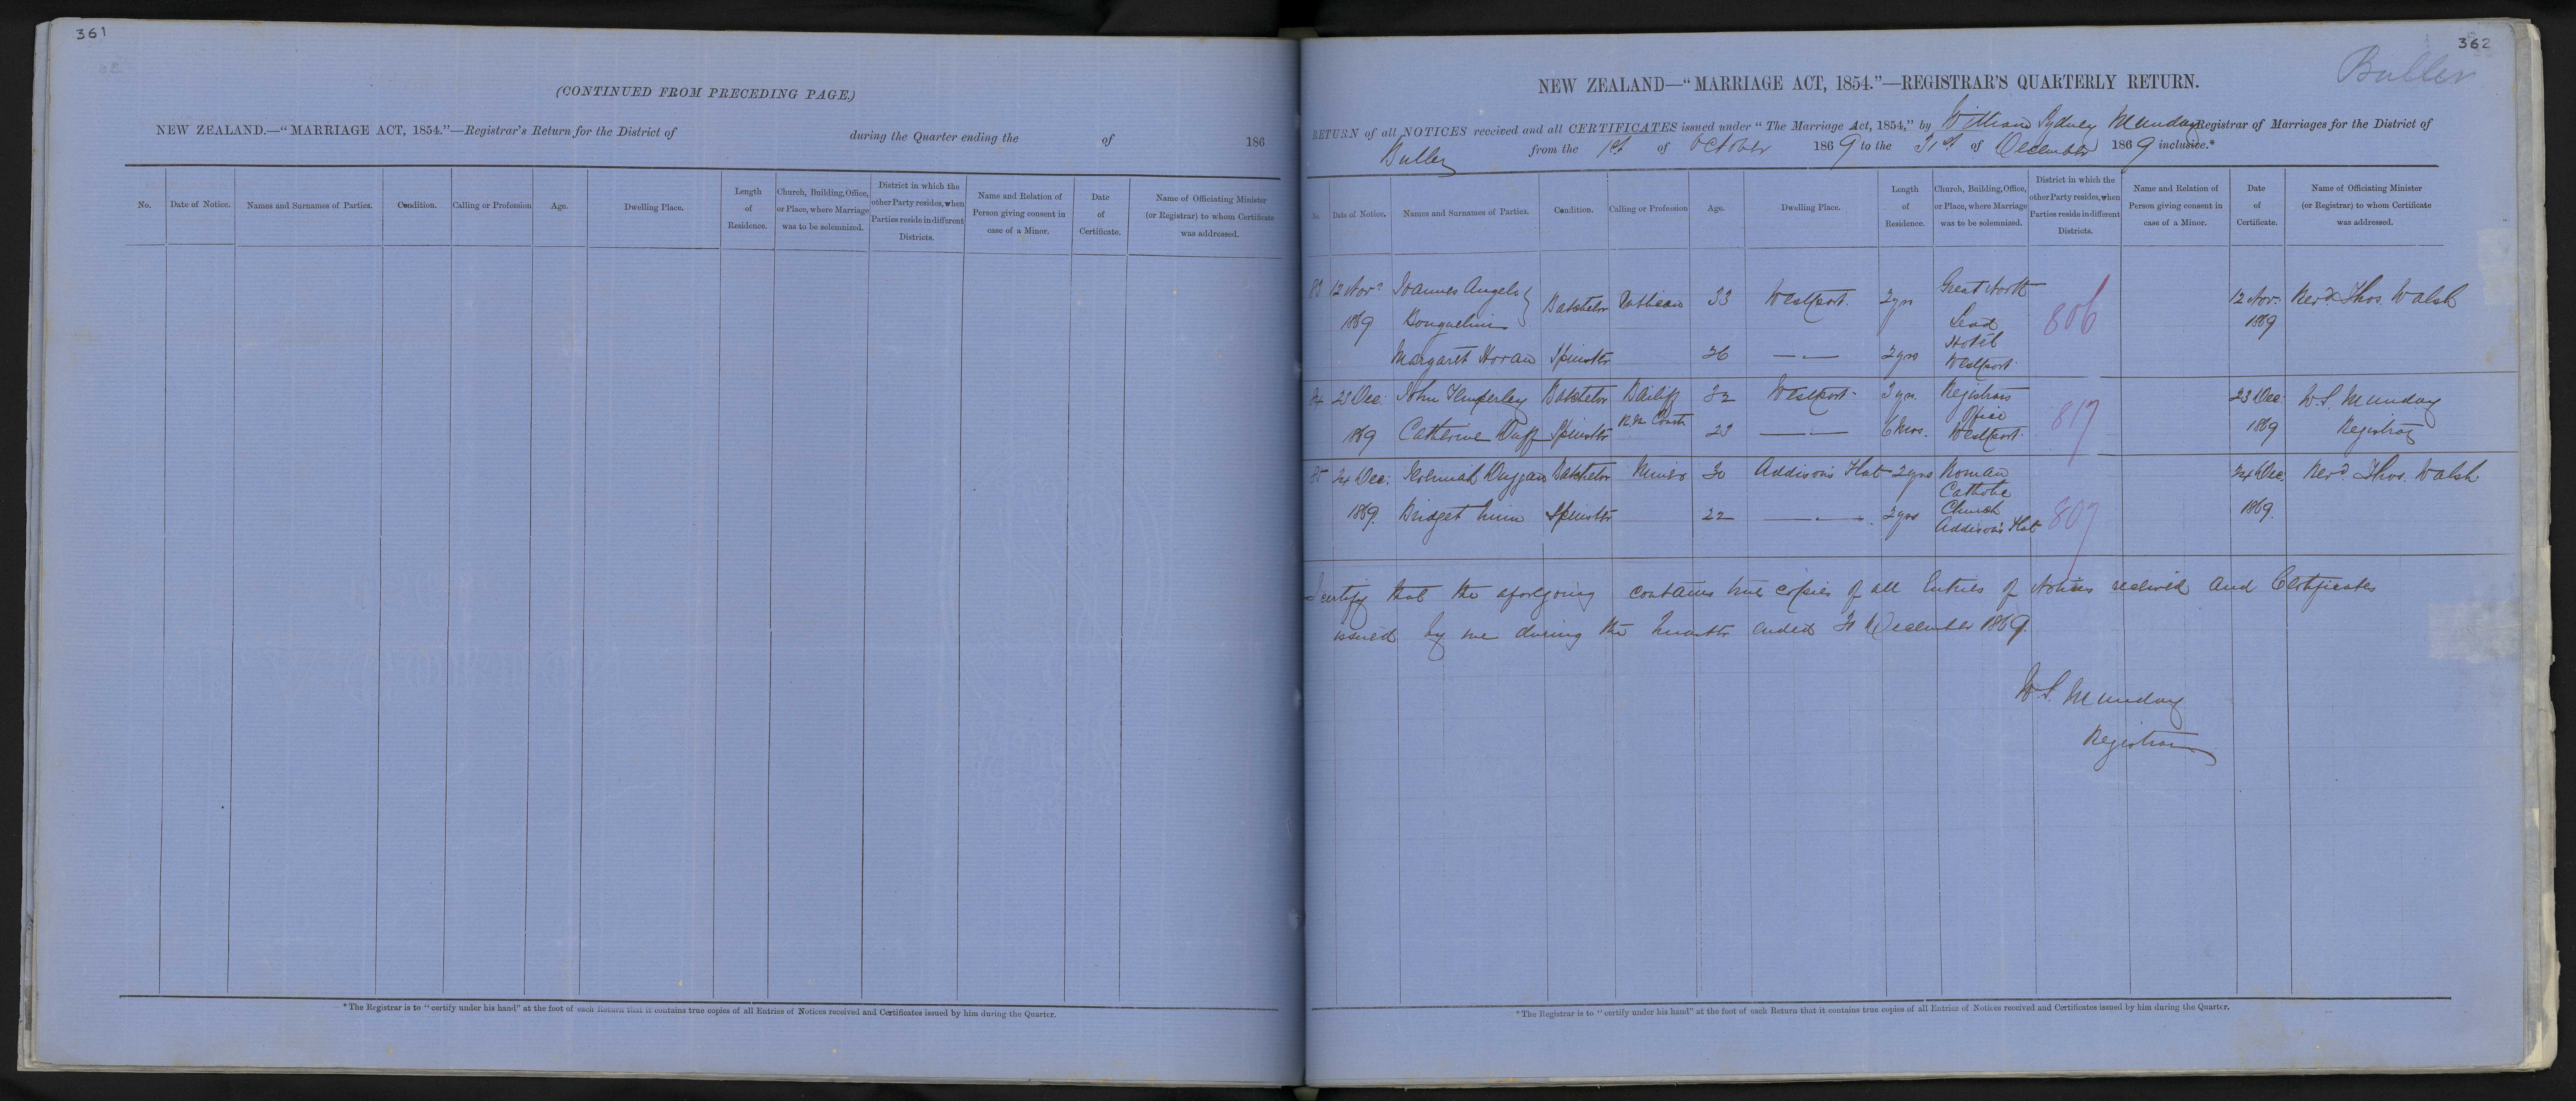 361
(CONTINUED FROM PRECEDING PAGE.)
NEW ZEALAND.—"MARRIAGE ACT, 1854."—Registrar's Return for the District of during the Quarter ending the of 186
No. Date of Notice. Names and Surnames of Parties. Condition. Calling or Profession Age. Dwelling Place. Length of Residence. Church, Building, Office, or Place, where Marriage was to be solemnized. District in which the other Party resides, when Parties reside in different Districts. Name and Relation of Person giving consent in case of a Minor. Date of Certificate. Name of Officiating Minister (or Registrar) to whom Certificate was addressed.
* The Registrar is to "certify under his hand" at the foot of each Return that it contains true copies of all Entries of Notices received and Certificates issued by him during the Quarter.
362
Buller
NEW ZEALAND—"MARRIAGE ACT, 1854."—REGISTRAR'S QUARTERLY RETURN.
RETURN of all NOTICES received and all CERTIFICATES issued under "The Marriage Act, 1854," by William Sydney Munday Registrar of Marriages for the District of
Buller from the 1st of October 1869 to the 31st of December 1869 inclusive.*
No. Date of Notice. Names and Surnames of Parties. Condition. Calling or Profession Age. Dwelling Place. Length of Residence. Church, Building, Office, or Place, where Marriage was to be solemnized. District in which the other Party resides, when Parties reside in different Districts. Name and Relation of Person giving consent in case of a Minor. Date of Certificate. Name of Officiating Minister (or Registrar) to whom Certificate was addressed.
83 12 Novr Joannes Angelo Batchelor 33 Westport. 2 yrs Great North 806 12 Nov. Revd Thos. Walsh
1869 Lead 1869
Margaret Horan Spinster 26 — — 2 yrs Hotel Westport.
84 23 Dec. John Timperley Batchelor Bailiff 32 Westport. 3 yrs. Registrars 817 23 Dec. W.S. Munday
1869 Catherine Duff Spinster R.M. Court 23 — — 6 mos. Office Westport. 1869 Registrar
85 24 Dec. Jeremiah Duggan Batchelor Miner 30 Addison's Flat 2 yrs Roman Catholic 807 24 Dec. Revd Thos. Walsh
1869. Bridget Spinster 22 — — 2 yrs Church Addison's Flat 1869.
I certify that the aforegoing contains true copies of all Entries of Notices received and Certificates
issued by me during the Quarter ended 31 December 1869.
W.S. Munday
Registrar
* The Registrar is to "certify under his hand" at the foot of each Return that it contains true copies of all Entries of Notices received and Certificates issued by him during the Quarter.